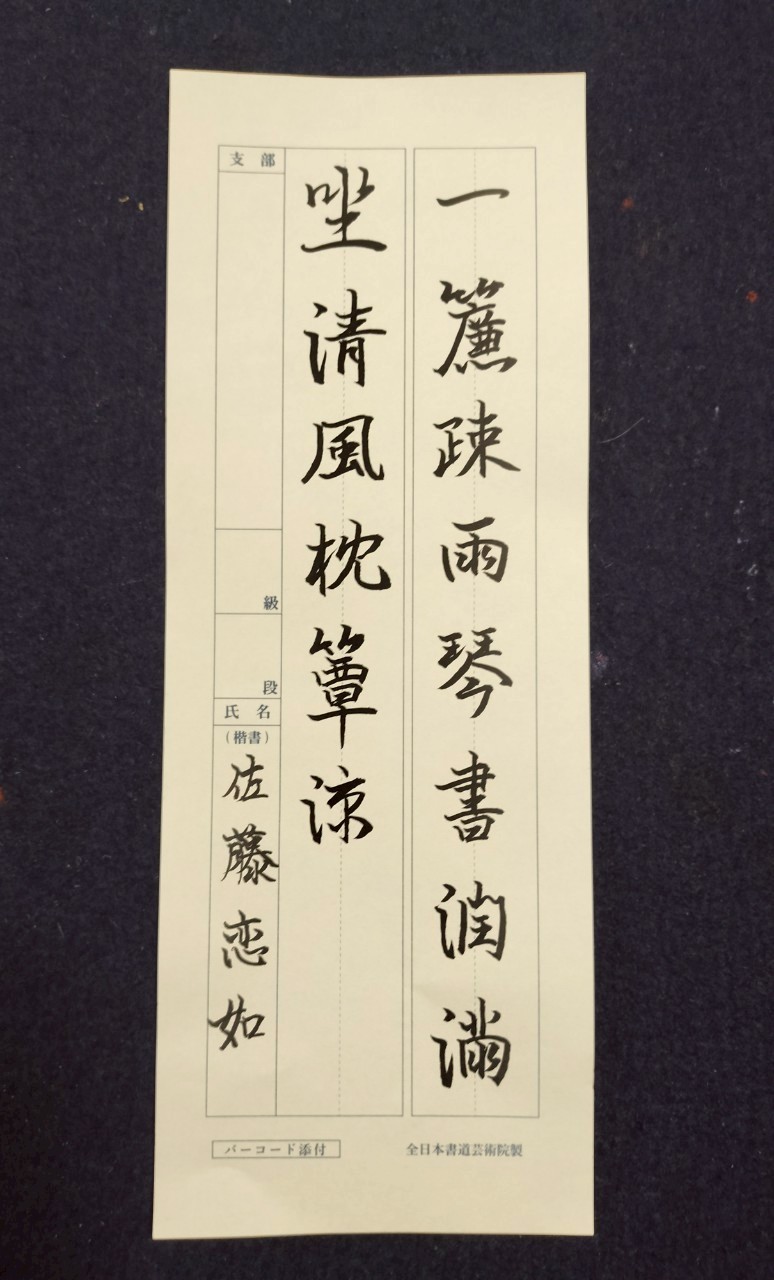 一簾疎雨琴書潤満
坐清風枕簟涼
支部
級
段
氏名
(楷書)
佐藤恋如
バーコード添付
全日本書道芸術院製